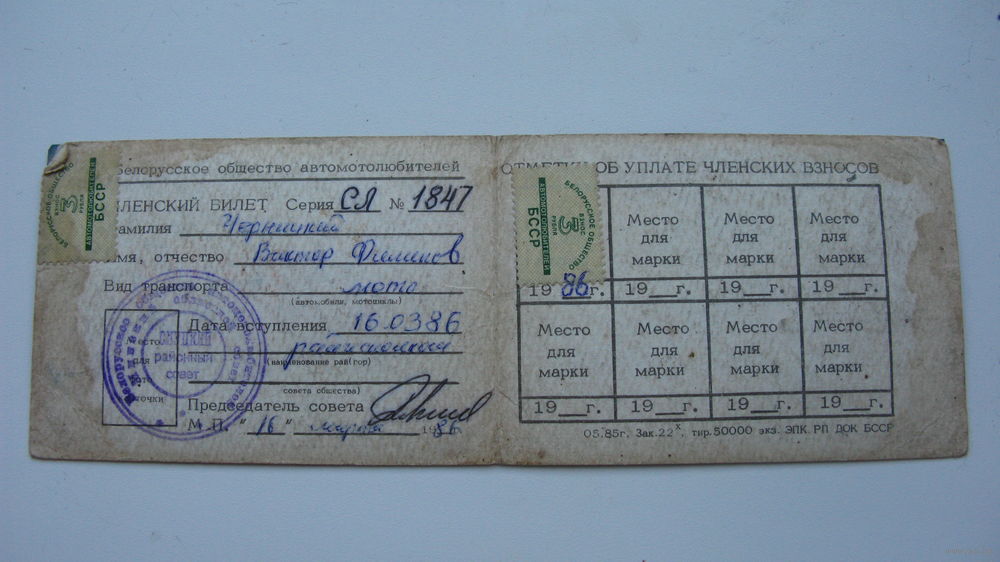 Белорусское общество автомотолюбителей
ЧЛЕНСКИЙ БИЛЕТ Серия СЛ № 1847
Фамилия Черницкий
Имя, отчество Виктор
Вид транспорта мото
(автомобили, мотоциклы)
Дата вступления 16.03.86
(наименование рай(гор)
совета общества)
Место
для
фото
карточки
Председатель совета
М.П. "16" марта 1986
районный
совет
БЕЛОРУССКОЕ ОБЩЕСТВО
АВТОМОТОЛЮБИТЕЛЕЙ
БССР
ВЗНОС
3
РУБЛЯ
ОТМЕТКИ ОБ УПЛАТЕ ЧЛЕНСКИХ ВЗНОСОВ
БЕЛОРУССКОЕ ОБЩЕСТВО
АВТОМОТОЛЮБИТЕЛЕЙ
БССР
ВЗНОС
3
РУБЛЯ
Место Место Место
для для для
марки марки марки
19 86г. 19__г. 19__г. 19__г.
Место Место Место Место
для для для для
марки марки марки марки
19__г. 19__г. 19__г. 19__г.
05.85г. Зак.22х, тир.50000 экз. ЭПК РП ДОК БССР